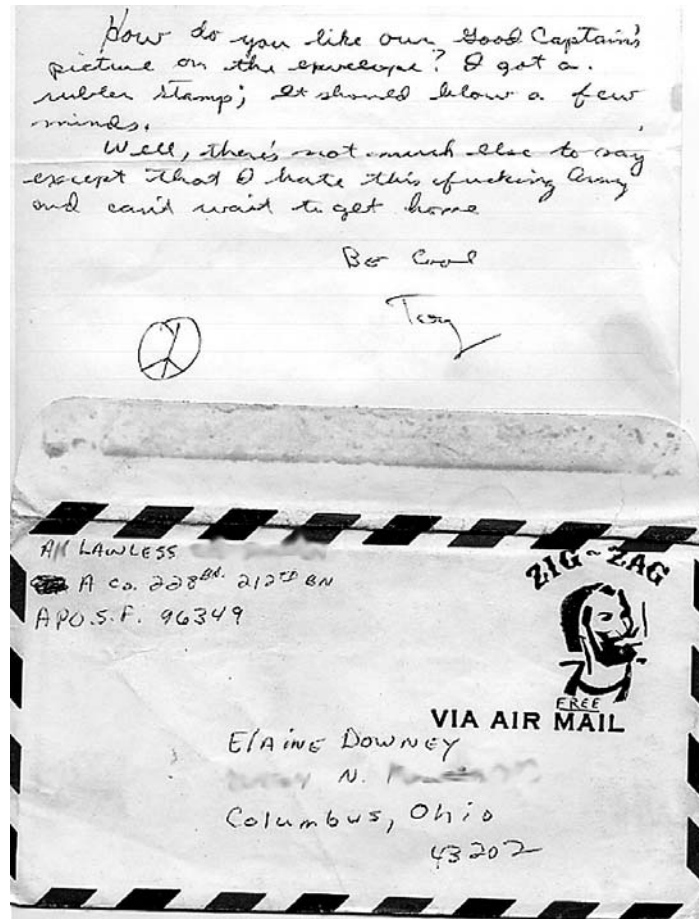 How do you like our Good Captain's
picture on the envelope? I got a
rubber stamp; It should blow a few
minds.
Well, there's not much else to say
except that I hate this fucking Army
and can't wait to get home
Be Cool
LAWLESS
A Co. 228
A.P.O. S.F. 96349
ZIG-ZAG
FREE
VIA AIR MAIL
ELAINE DOWNEY
N.
Columbus, Ohio
43202